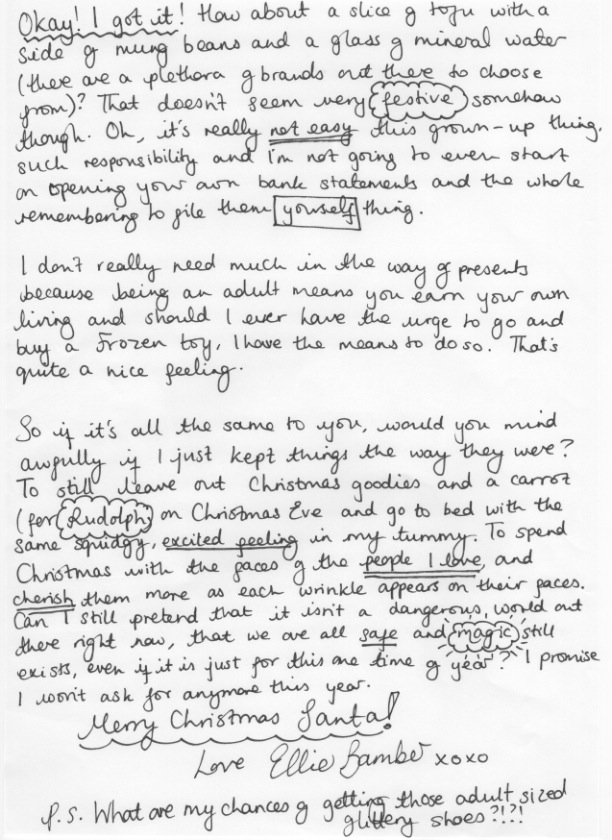 Okay! I got it! How about a slice of tofu with a
side of mung beans and a glass of mineral water
(there are a plethora of brands out there to choose
from)? That doesn't seem very festive somehow
though. Oh, it's really not easy this grown-up thing,
such responsibility and I'm not going to even start
on opening your own bank statements and the whole
remembering to file them yourself thing.
I don't really need much in the way of presents
because being an adult means you earn your own
living and should I ever have the urge to go and
buy a Frozen toy, I have the means to do so. That's
quite a nice feeling.
So if it's all the same to you, would you mind
awfully if I just kept things the way they were?
To still leave out Christmas goodies and a carrot
(for Rudolph) on Christmas Eve and go to bed with the
same squidgy, excited feeling in my tummy. To spend
Christmas with the faces of the people I love, and
cherish them more as each wrinkle appears on their faces.
Can I still pretend that it isn't a dangerous, world out
there right now, that we are all safe and magic still
exists, even if it is just for this one time of year? I promise
I won't ask for anymore this year.
Merry Christmas Santa!
Love Ellie Bamber xoxo
P.S. What are my chances of getting those adult sized
glittery shoes?!?!